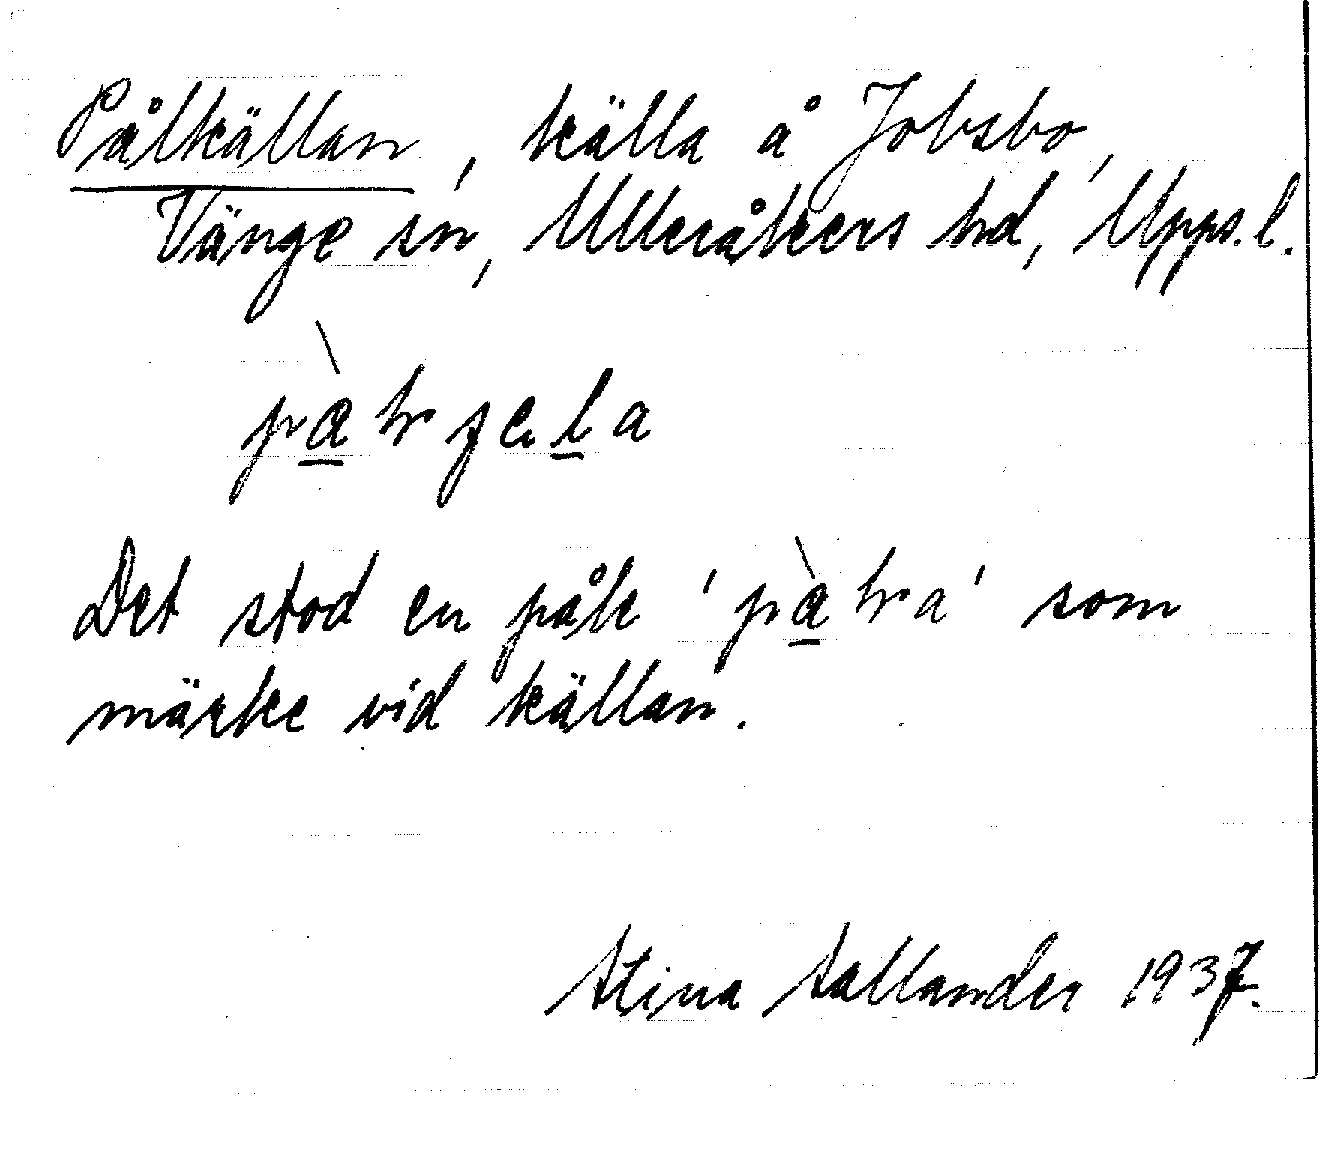 Pålkällan, källa å Jobsbo,
Vänge sn, Ulleråkers hd, Upps.l.
Det stod en påle 'pàra' som
märke vid källan.
Stina Sallander 1937.